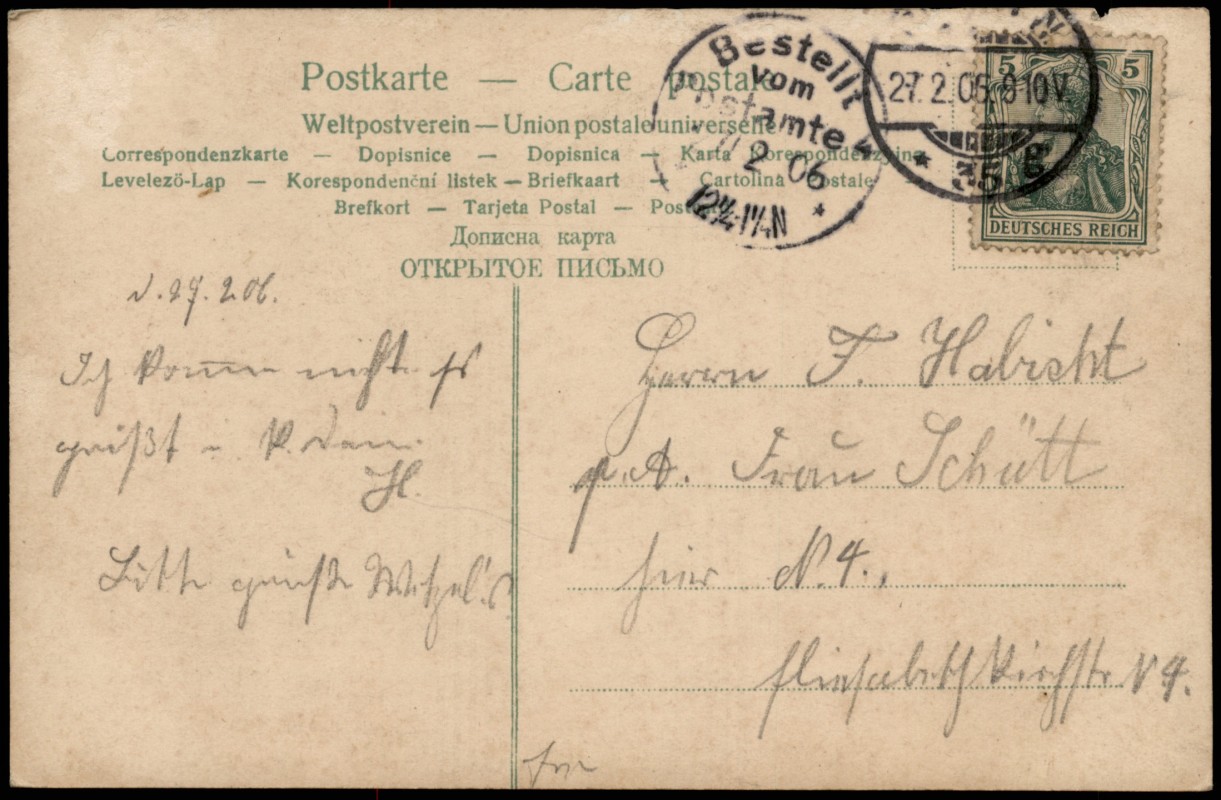 Postkarte — Carte postale
Weltpostverein — Union postale universelle
Correspondenzkarte — Dopisnice — Dopisnica — Karta Korespondenzyjna
Levelező-Lap — Korespondenční listek — Briefkaart — Cartolina Postale
Brefkort — Tarjeta Postal —
Дописна карта
ОТКРЫТОЕ ПИСЬМО
Bestellt
vom
Postamte 4
2 06
12¼-1¼N
27.2.06. 9 10V
* 35 g
5 5
DEUTSCHES REICH
d. 27.2.06.
Ich komme nicht. Es
grüßt u. k. Dein
H.
Bitte grüße Wetzel's
Herrn F. Habicht
p.A. Frau Schütt
hier N.4.,
Elisabethkirchstr. N 4.